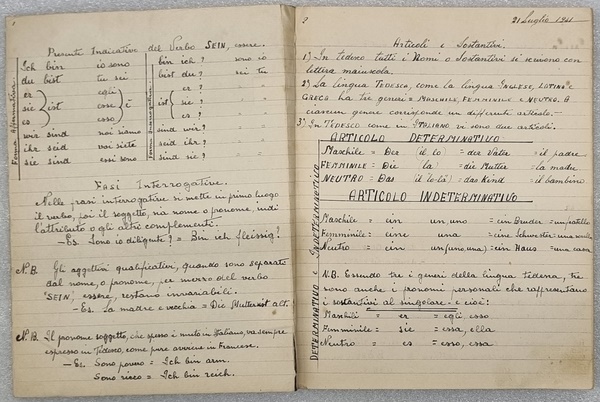 Presente Indicativo del Verbo SEIN, essere.
Forma Affermativa
Ich bin io sono
du bist tu sei
er egli
sie ist esse è
es esso
wir sind noi siamo
ihr seid voi siete
sie sind essi sono
Forma Interrogativa
bin ich? sono io
bist du? sei tu
er?
ist sie?
es?
sind wir?
seid ihr?
sind sie?
Frasi Interrogative.
Nelle frasi interrogative si mette in primo luogo
il verbo, poi il soggetto, sia nome o pronome, indi
l'attributo o gli altri complementi.
-Es. Sono io diligente? = Bin ich fleissig?
N.B. Gli aggettivi qualificativi, quando sono separati
dal nome, o pronome, per mezzo del verbo
"SEIN", essere, restano invariabili.
-Es. La madre è vecchia = Die Mutter ist alt.
N.B. Il pronome soggetto, che spesso è muto in Italiano, va sempre
espresso in Tedesco, come pure avviene in Francese.
-Es. Sono povero = Ich bin arm.
Sono ricco = Ich bin reich.
2
21 Luglio 1941
Articoli e Sostantivi.
1) In tedesco tutti i Nomi o Sostantivi si scrivono con
lettera maiuscola.
2) La lingua TEDESCA, come la lingua INGLESE, LATINA e
GRECA ha tre generi = MASCHILE, FEMMINILE e NEUTRO. A
ciascun genere corrisponde un differente articolo.-
3) In TEDESCO come in ITALIANO vi sono due articoli.
DETERMINATIVO e INDETERMINATIVO
ARTICOLO DETERMINATIVO
MASCHILE = Der (il lo) = der Vater = il padre
FEMMINILE = Die (la) = die Mutter = la madre
NEUTRO = Das (il lo la) = das Kind = il bambino
ARTICOLO INDETERMINATIVO
Maschile = ein un, uno = ein Bruder = un fratello
Femminile = eine una = eine Schwester = una sorella
Neutro = ein (un, uno, una) = ein Haus = una casa
N.B. Essendo tre i generi della lingua tedesca, tre
sono anche i pronomi personali che rappresentano
i sostantivi al singolare - e cioè:
Maschili = er = egli, esso
Femminile = sie = essa, ella
Neutro = es = esso, essa